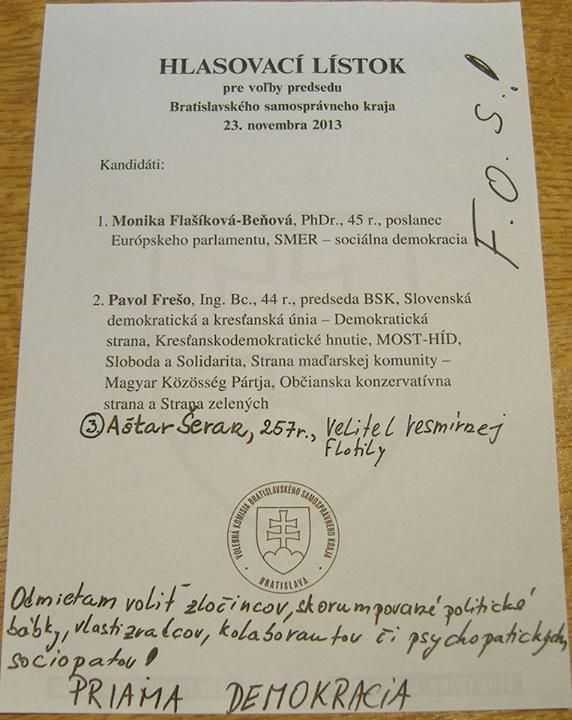 HLASOVACÍ LÍSTOK
pre voľby predsedu
Bratislavského samosprávneho kraja
23. novembra 2013
F.O.S.!
Kandidáti:
1. Monika Flašíková-Beňová, PhDr., 45 r., poslanec
Európskeho parlamentu, SMER – sociálna demokracia
2. Pavol Frešo, Ing. Bc., 44 r., predseda BSK, Slovenská
demokratická a kresťanská únia – Demokratická
strana, Kresťanskodemokratické hnutie, MOST-HÍD,
Sloboda a Solidarita, Strana maďarskej komunity –
Magyar Közösség Pártja, Občianska konzervatívna
strana a Strana zelených
3 Aštar Šeran, 257r., Veliteľ vesmírnej
Flotily
VOLEBNÁ KOMISIA BRATISLAVSKÉHO SAMOSPRÁVNEHO KRAJA
• BRATISLAVA •
Odmietam voliť zločincov, skorumpované politické
bábky, vlastizradcov, kolaborantov či psychopatických
sociopatov!
PRIAMA DEMOKRACIA